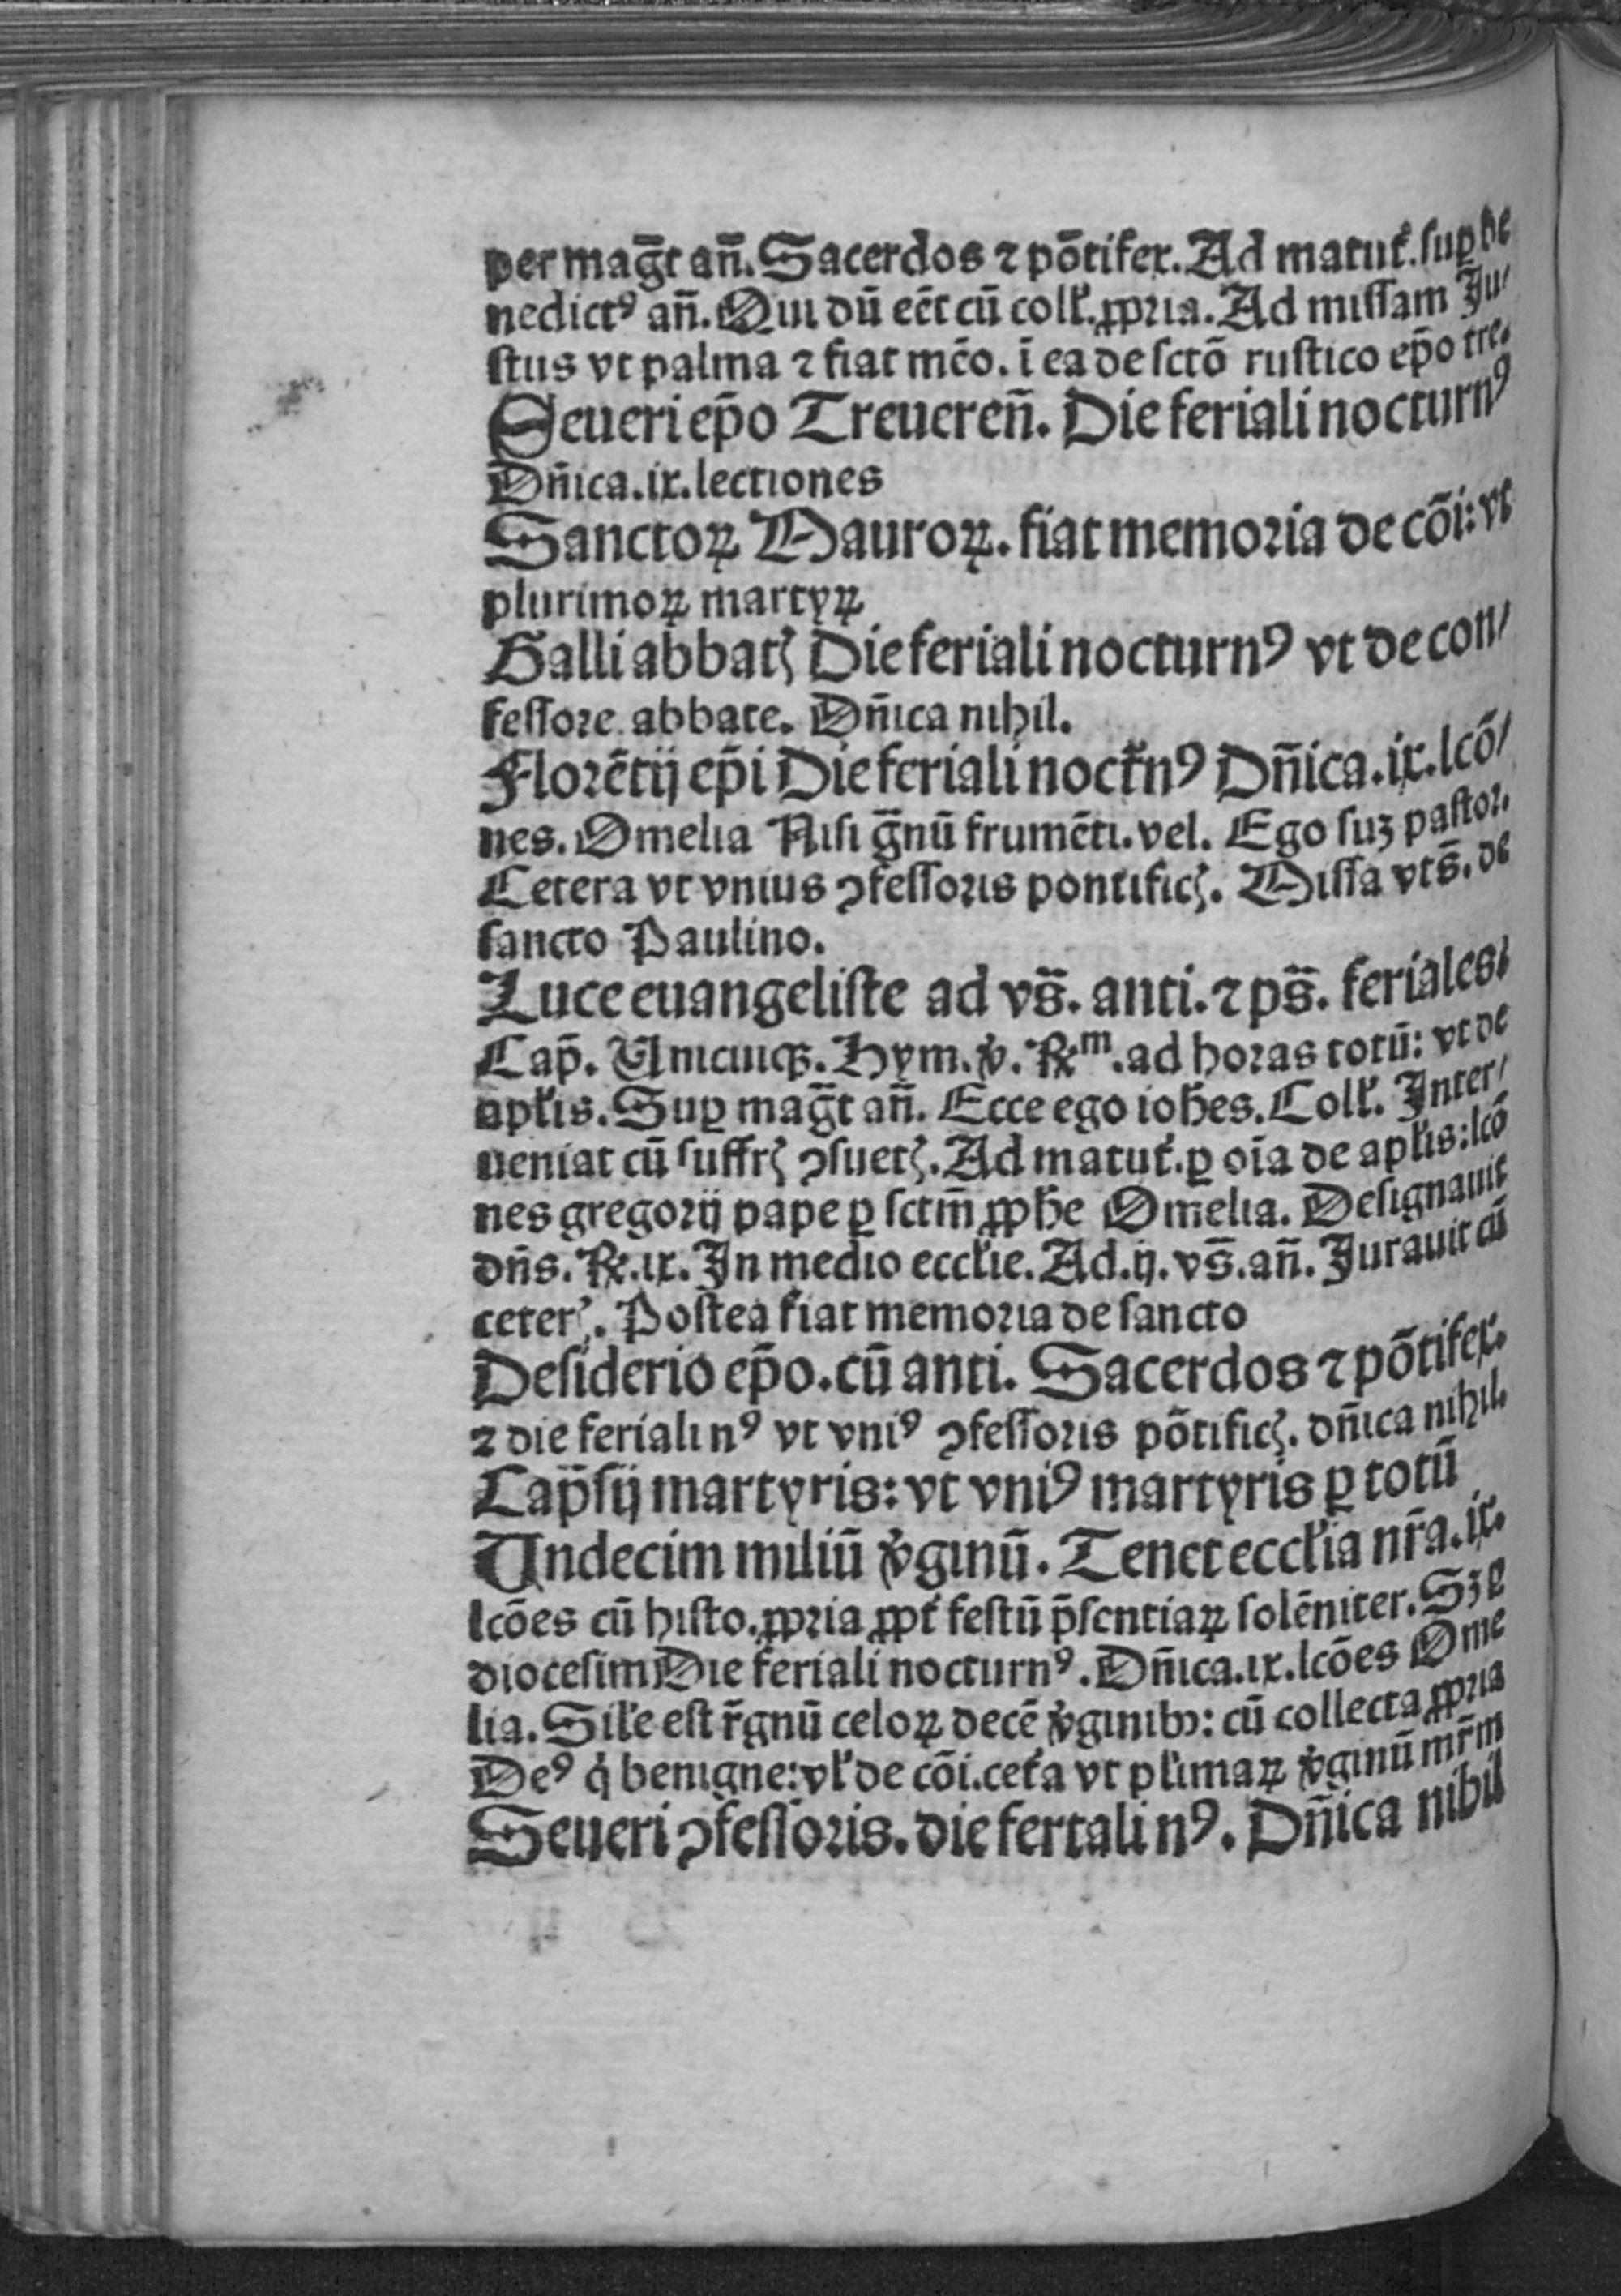 per mag̅t an̄. Sacerdos ⁊ põtifex. Ad matut̃. suꝑ be
nedictꝰ an̄. Qui dū eēt cū coll̃. ꝓpria. Ad missam Ju⸗
stus vt palma ⁊ fiat mēo. ī ea de sctō rustico ep̄o tre.
Seueri ep̄o Treueren̄. Die feriali nocturnꝰ
Dn̄ica. ix. lectiones
Sanctoꝝ Mauroꝝ. fiat memoria de cōi: vt
plurimoꝝ martyꝝ
Galli abbatꝭ Die feriali nocturnꝰ vt de con⸗
fessore abbate. Dn̄ica nihil.
Florētij ep̄i Die feriali noct̃nꝰ Dn̄ica. ix. lcō⸗
nes. Omelia Nisi g̅nū frumēti. vel. Ego suꝫ pastor.
Cetera vt vnius ꝯfessoris pontificꝭ. Missa vts̄. de
sancto Paulino.
Luce euangeliste ad vs̄. anti. ⁊ ps̄. feriales⸗
Cap̄. Unicuiqꝫ. Hym. ꝟ. ℞ᵐ. ad horas totū: vt de
apl̃is. Suꝑ mag̅t an̄. Ecce ego ioh̄es. Coll̃. Inter⸗
ueniat cū suffrꝭ ꝯsuetꝭ. Ad matut̃. ꝑ oīa de apl̃is: lcō
nes gregorij pape ꝑ sctm̄ ꝓph̄e Omelia. Designauit
dn̄s. ℞. ix. In medio eccl̃ie. Ad. ij. vs̄. an̄. Jurauit cū
ceterꝭ. Postea fiat memoria de sancto
Desiderio ep̄o. cū anti. Sacerdos ⁊ põtifex.
⁊ die feriali nꝰ vt vniꝰ ꝯfessoris põtificꝭ. dn̄ica nihil.
Cap̄sij martyris: vt vniꝰ martyris ꝑ totū
Undecim miliū ꝟginū. Tenet eccl̃ia nr̄a. ix.
lcōes cū histo. ꝓpria ꝓpt̃ festū p̄sentiaꝝ solēniter. Sꝫ ꝑ
diocesim Die feriali nocturnꝰ. Dn̄ica. ix. lcōes Ome
lia. Sil̃e est r̄gnū celoꝝ decē ꝟginibꝰ: cū collecta ꝓpria
Deꝰ q̇ benigne: vl̃ de cōi. cet̃a vt pl̃imaꝝ ꝟginū mr̄m
Seueri ꝯfessoris. die fertali nꝰ. Dn̄ica nihil